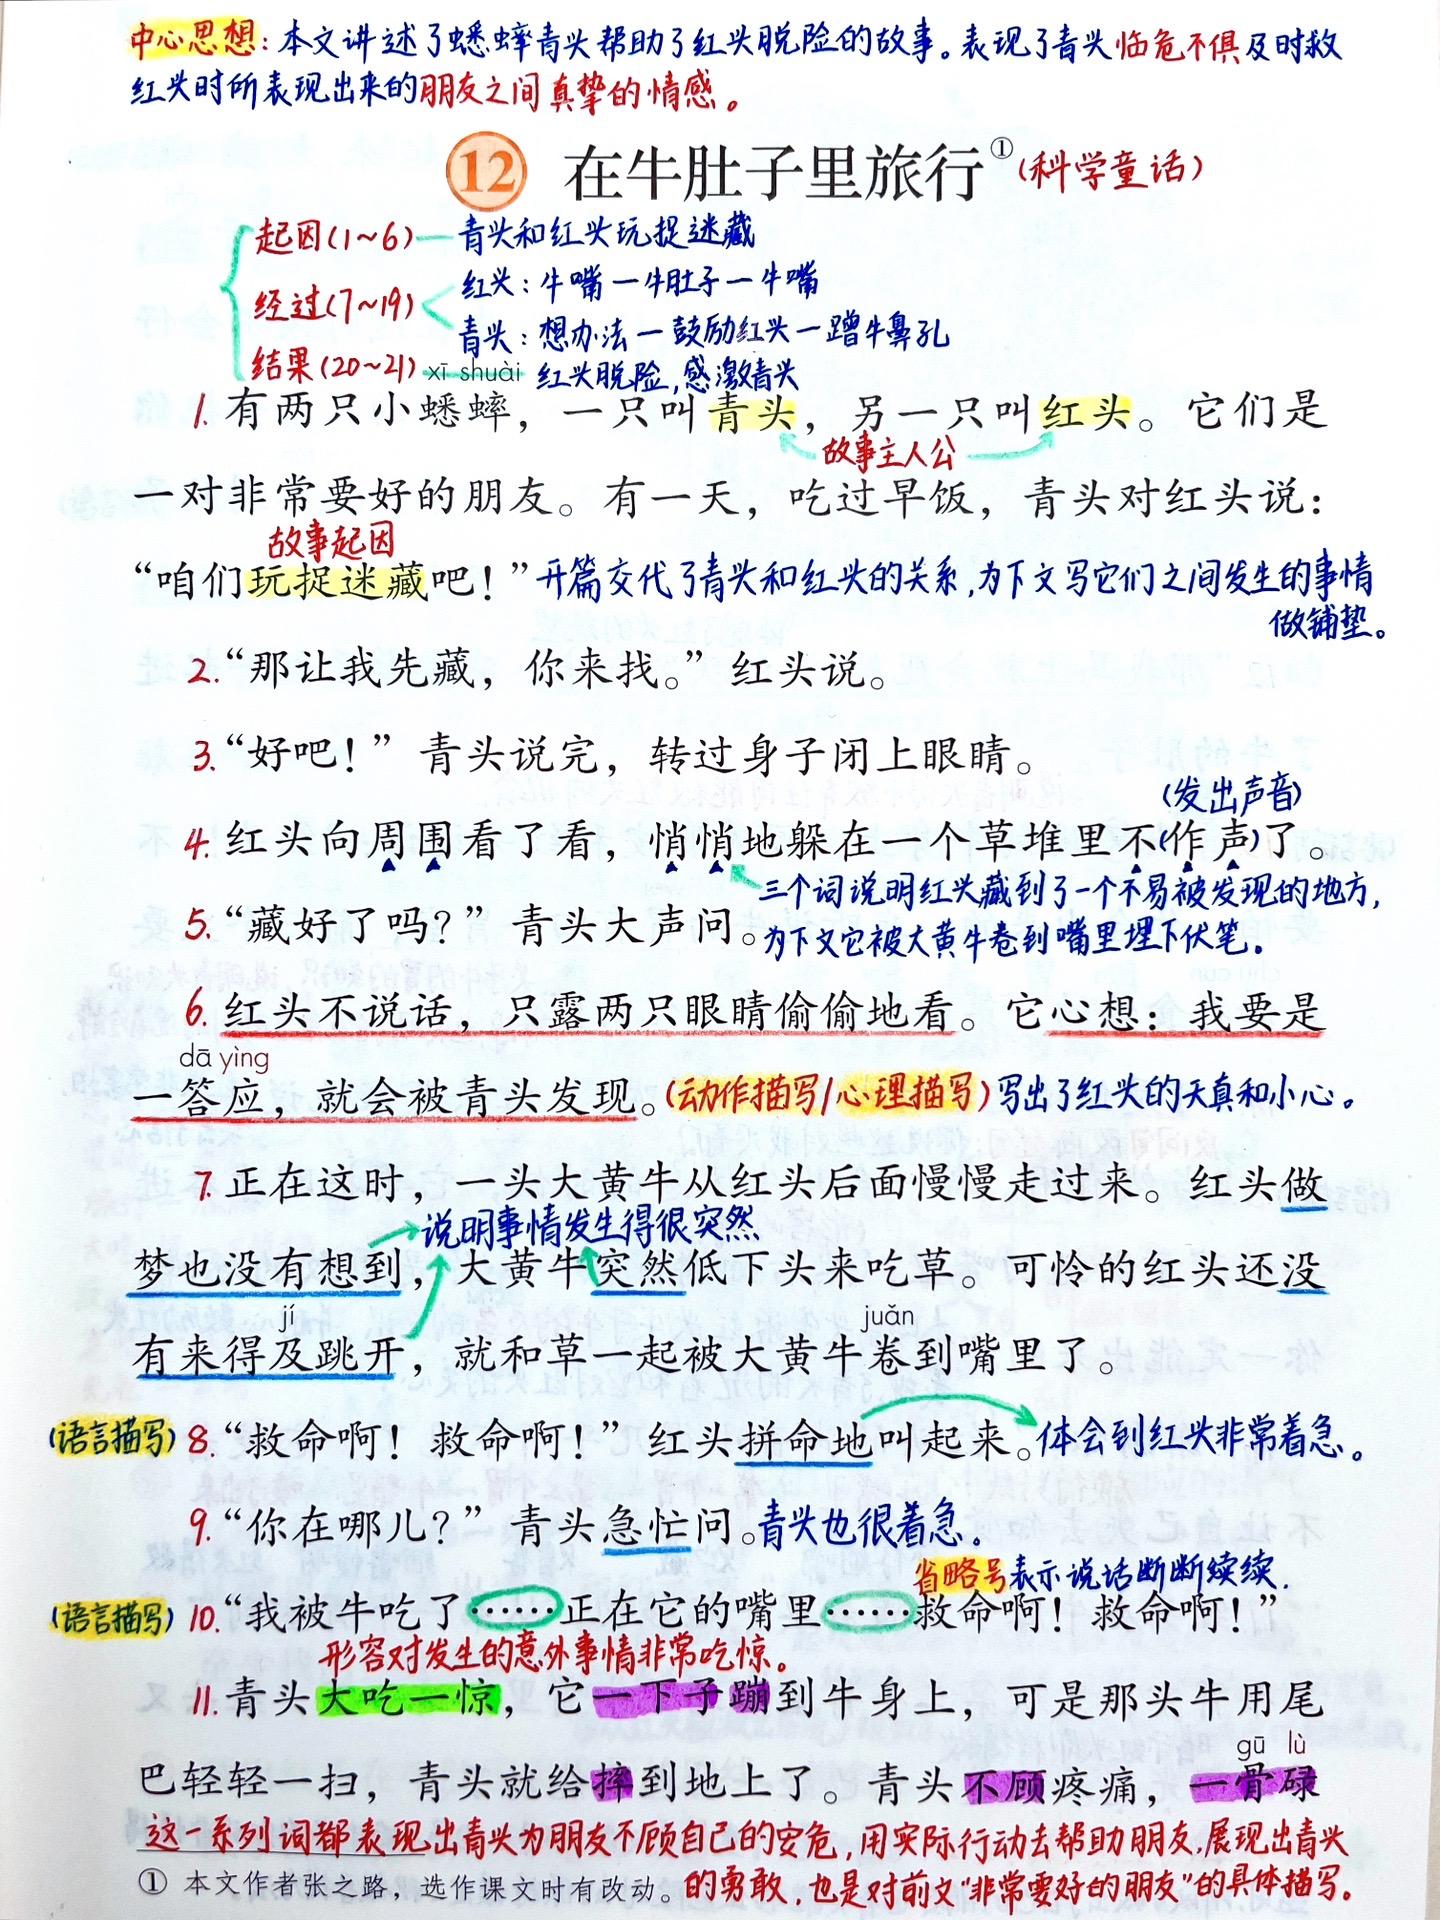 中心思想：本文讲述了蟋蟀青头帮助了红头脱险的故事。表现了青头临危不俱及时救
红头时所表现出来的朋友之间真挚的情感。
12 在牛肚子里旅行①(科学童话)
起因(1~6)—青头和红头玩捉迷藏
经过(7~19)
红头：牛嘴—牛肚子—牛嘴
青头：想办法—鼓励红头—蹭牛鼻孔
结果(20~21)—红头脱险,感激青头
xī shuài
1.有两只小蟋蟀，一只叫青头，另一只叫红头。它们是
故事主人公
一对非常要好的朋友。有一天，吃过早饭，青头对红头说：
故事起因
“咱们玩捉迷藏吧！”开篇交代了青头和红头的关系,为下文写它们之间发生的事情
做铺垫。
2.“那让我先藏，你来找。”红头说。
3.“好吧！”青头说完，转过身子闭上眼睛。
(发出声音)
4.红头向周围看了看，悄悄地躲在一个草堆里不(作声)了。
三个词说明红头藏到了一个不易被发现的地方,
5.“藏好了吗？”青头大声问。为下文它被大黄牛卷到嘴里埋下伏笔.
6.红头不说话，只露两只眼睛偷偷地看。它心想：我要是
dā yìng
一答应，就会被青头发现。(动作描写/心理描写)写出了红头的天真和小心。
7.正在这时，一头大黄牛从红头后面慢慢走过来。红头做
说明事情发生得很突然
梦也没有想到，大黄牛突然低下头来吃草。可怜的红头还没
jí juǎn
有来得及跳开，就和草一起被大黄牛卷到嘴里了。
(语言描写)8.“救命啊！救命啊！”红头拼命地叫起来。体会到红头非常着急。
9.“你在哪儿？”青头急忙问。青头也很着急。
省略号表示说话断断续续.
(语言描写)10.“我被牛吃了……正在它的嘴里……救命啊！救命啊！”
形容对发生的意外事情非常吃惊。
11.青头大吃一惊，它一下子蹦到牛身上，可是那头牛用尾
gū lù
巴轻轻一扫，青头就给摔到地上了。青头不顾疼痛，一骨碌
这一系列词都表现出青头为朋友不顾自己的安危,用实际行动去帮助朋友,展现出青头
① 本文作者张之路，选作课文时有改动。的勇敢,也是对前文“非常要好的朋友”的具体描写.